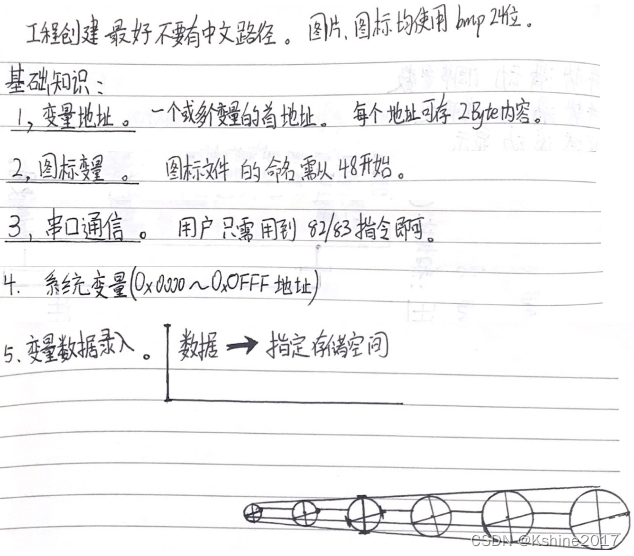 工程创建最好不要有中文路径。图片、图标均使用bmp 24位。
基础知识：
1, 变量地址。 一个或多个变量的首地址。 每个地址可存2Byte内容。
2, 图标变量。 图标文件的命名需从48开始。
3, 串口通信。 用户只需用到82/83指令即可。
4. 系统变量(0x0000～0x0FFF地址)
5、变量数据录入。 数据 → 指定存储空间
CSDN @Kshine2017